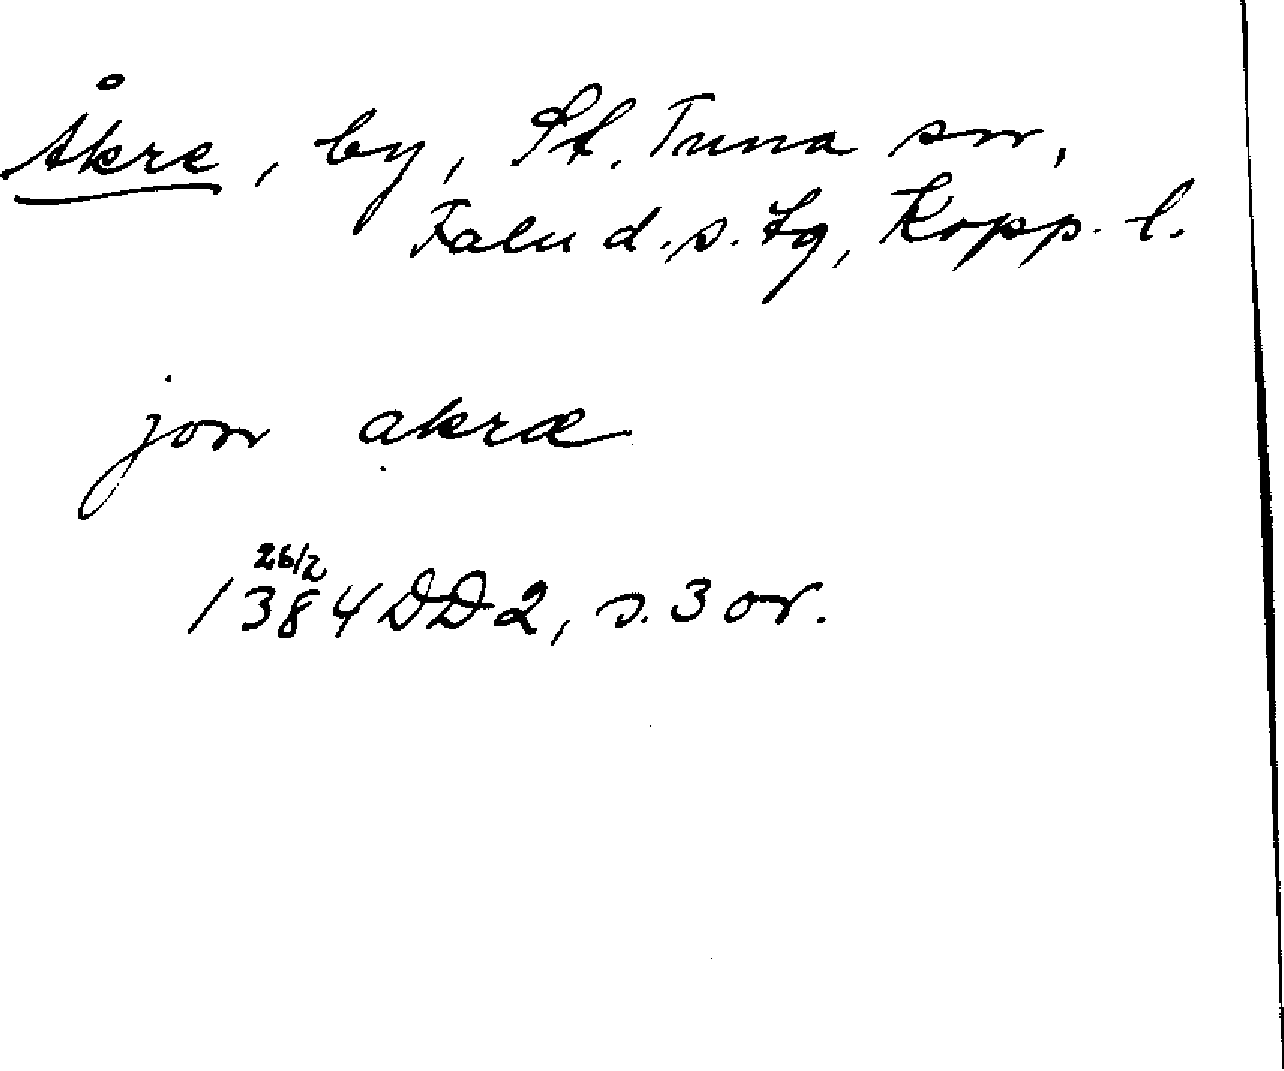 Åkre, by, St. Tuna sn,
Falu d. s. tg, Kopp. l.
jon akræ
26/2
1384 DD 2, s. 3 or.